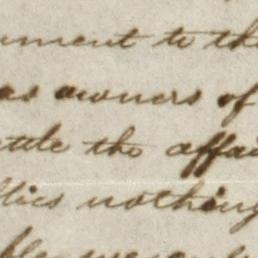 ument to the
as owners of
ttle the affai
lies nothing